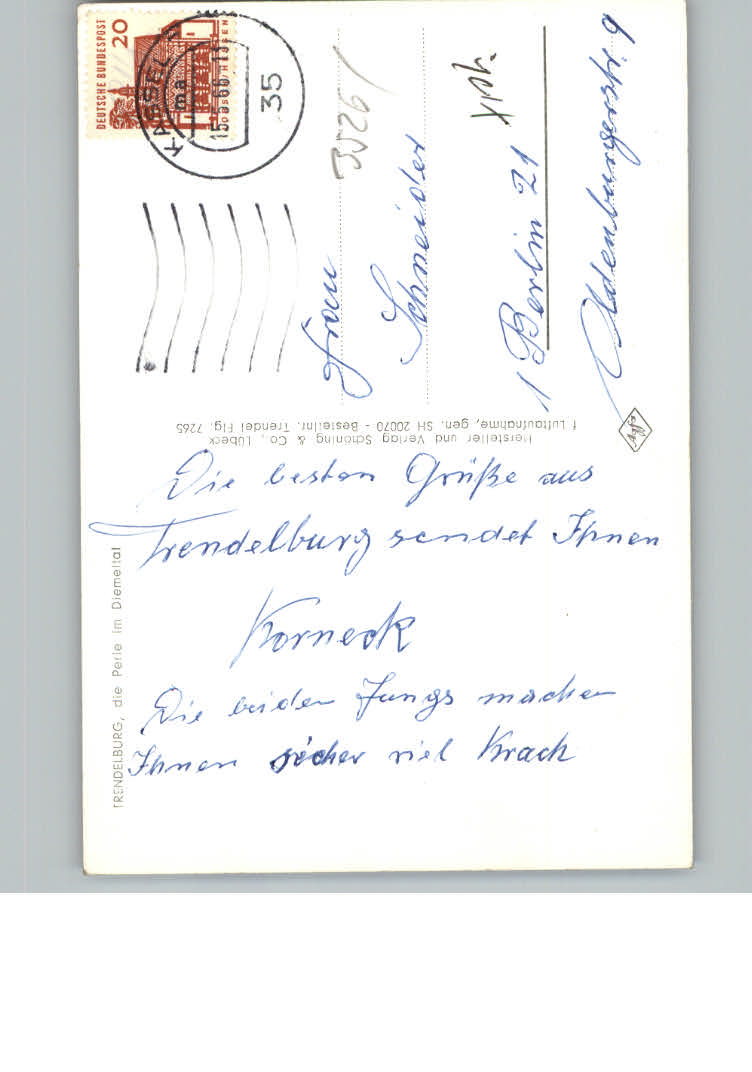 Die besten Grüße aus
Trendelburg sendet Ihnen
Korneck
Die beiden Jungs machen
Ihnen sicher viel Krach
TRENDELBURG, die Perle im Diemeltal
Hersteller und Verlag Schöning & Co., Lübeck
Luftaufnahme, gen. SH 20070 - Bestellnr. Trendel Flg. 7265
DEUTSCHE BUNDESPOST
20
35
KASSEL
Frau
Schneider
1 Berlin 21
Oldenburgerstr. 9